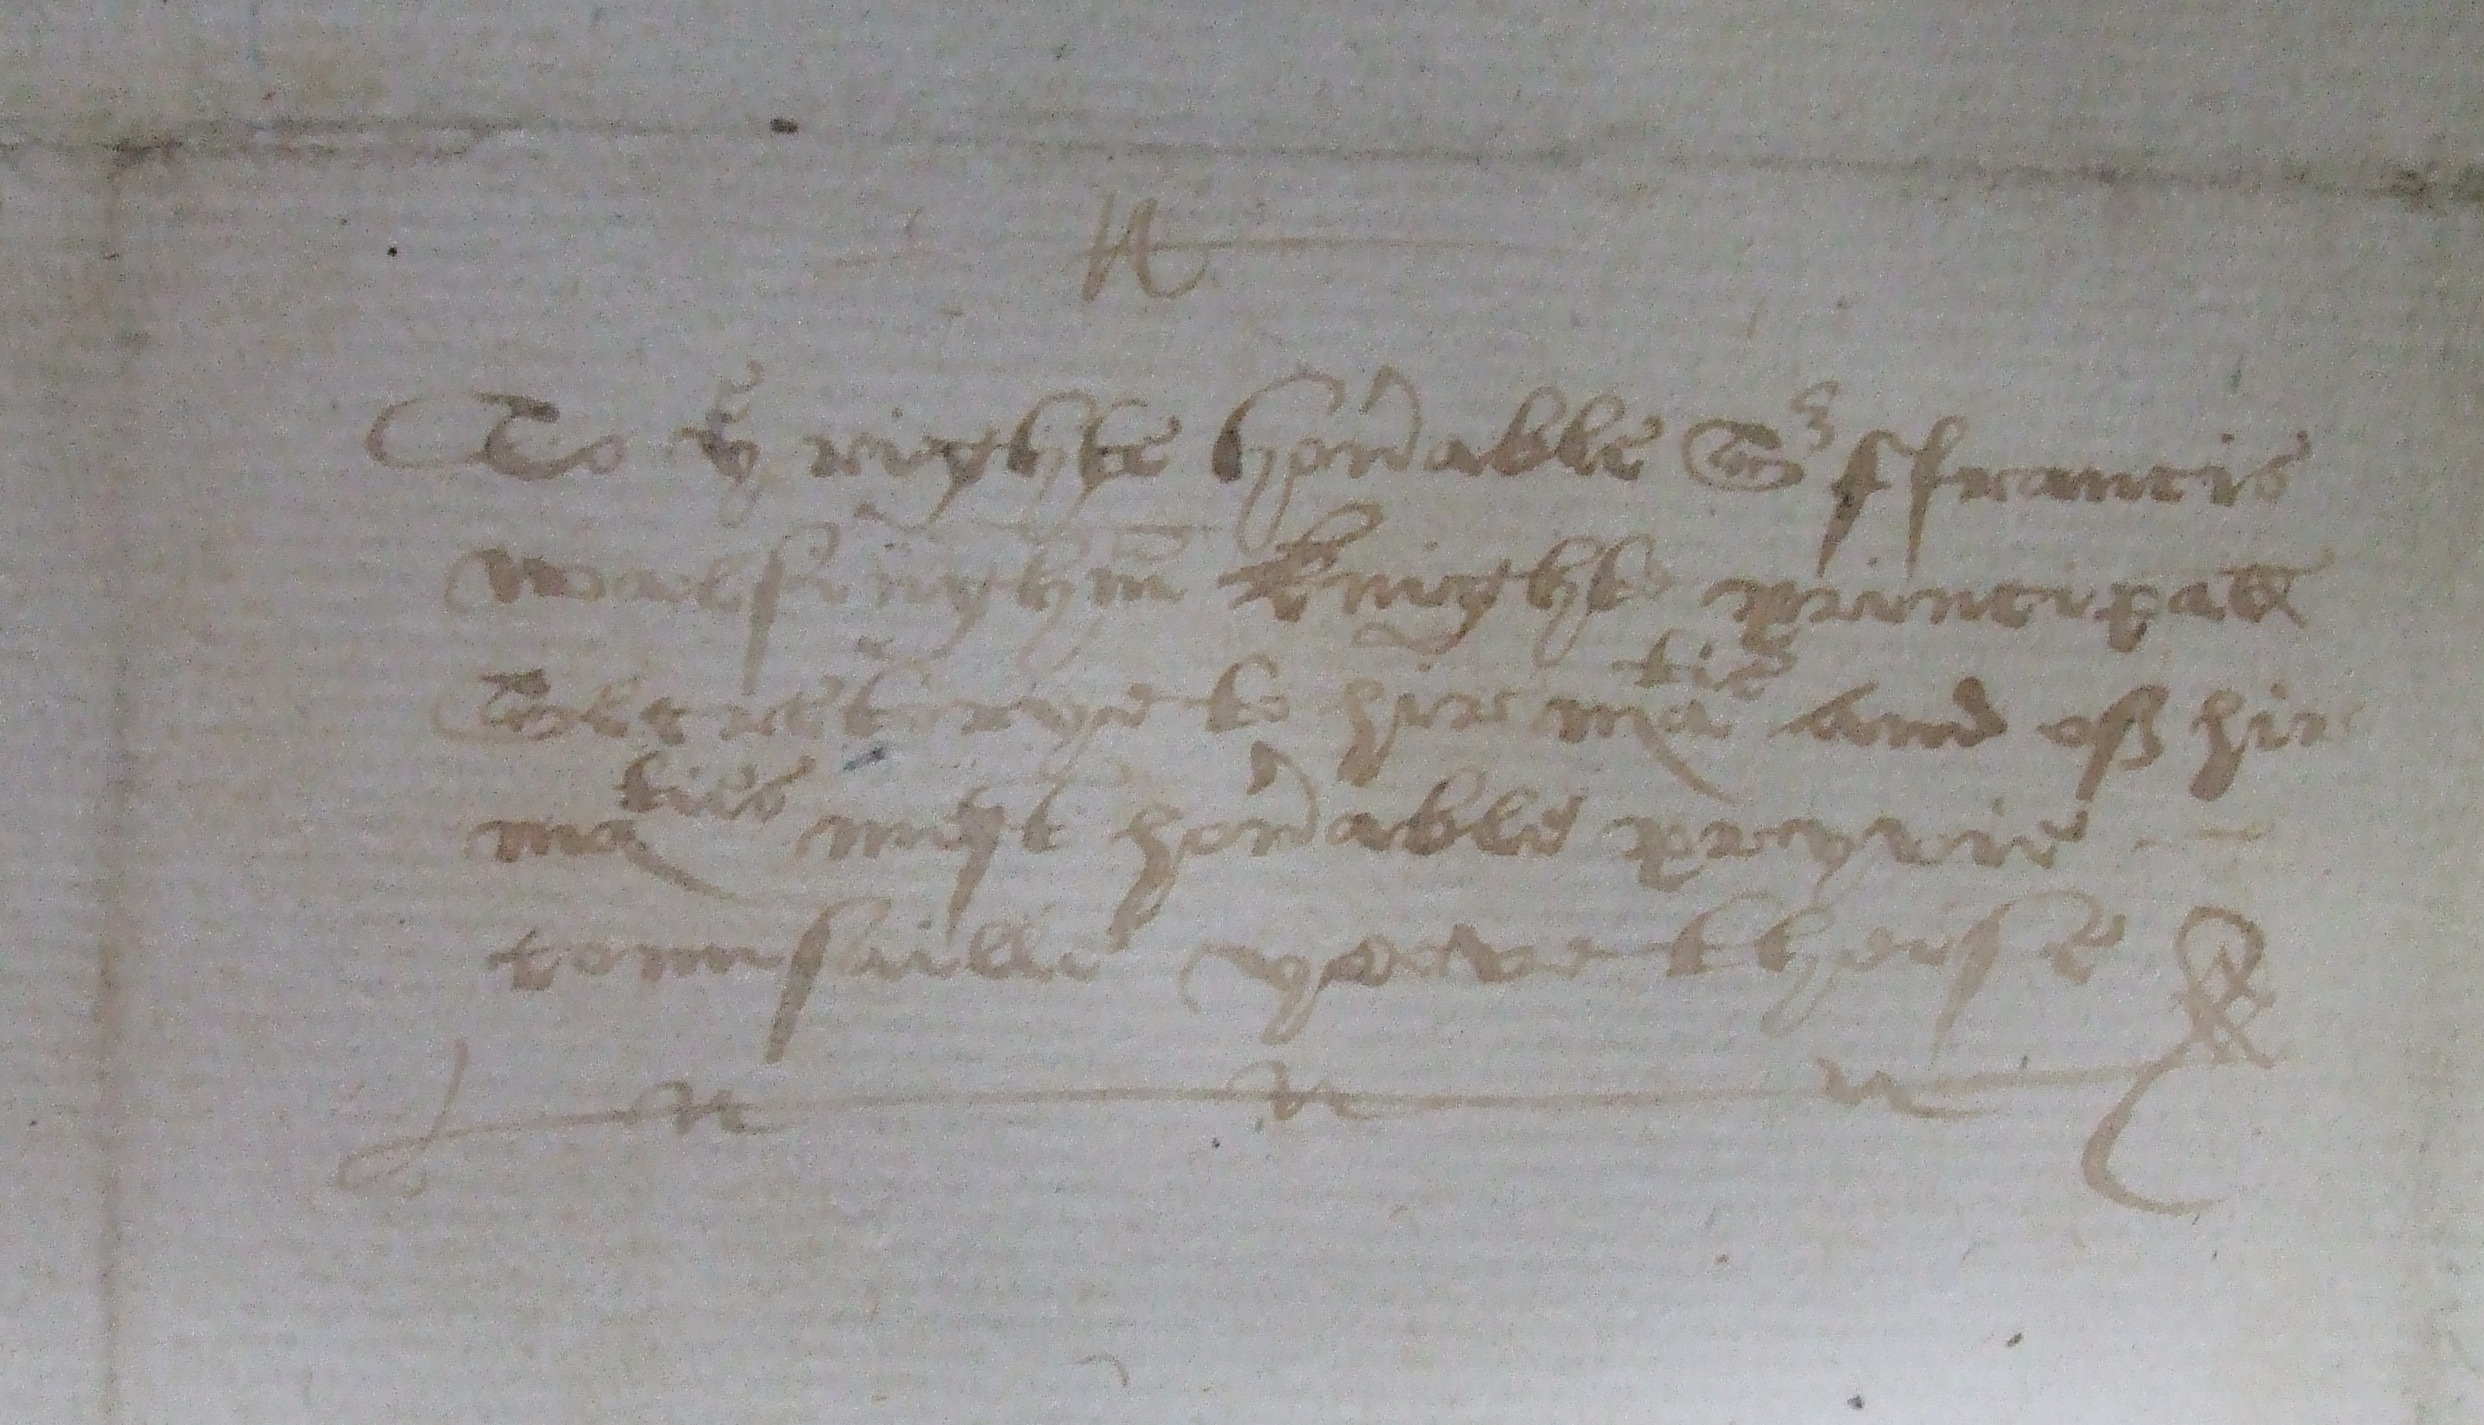 To ye righte honrable Sr ffrancis
walsinghm knight principall
Secretorye to hir matie and off hir
maties most honrable pryvie
counsaille yeve theise